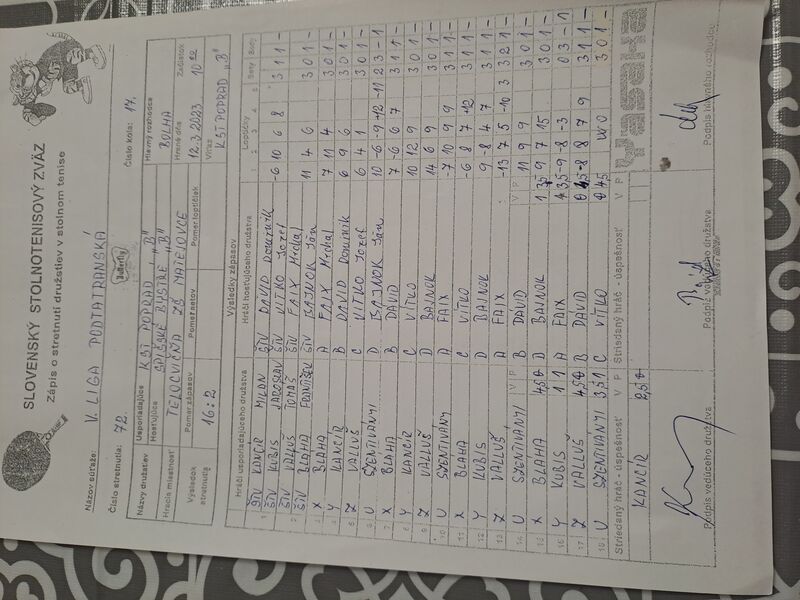 SLOVENSKÝ STOLNOTENISOVÝ ZVÄZ
Zápis o stretnutí družstiev v stolnom tenise
Názov súťaže: V. LIGA PODTATRANSKÁ
Butterfly
Číslo stretnutia: 72. Číslo kola: 17.
Názvy družstiev Usporiadajúce KST POPRAD "B" Hlavný rozhodca BOLHA
Hosťujúce SPIŠSKÉ BYSTRÉ "B" Hrané dňa Začiatok
Hracia miestnosť TELOCVIČŇA ZŠ MATEJOVCE 12.3.2023 10
Výsledok stretnutia Pomer zápasov 16:2 Pomer setov Pomer loptičiek Víťaz KST POPRAD "B"
Výsledky zápasov
Hráči usporiadajúceho družstva Hráči hosťujúceho družstva Loptičky Sety Body
1 2 3 4 5
KANCÍR MILAN DÁVID DOMINIK
ŠTV KUBIS JAROSLAV ŠTV VITKO JOZEF -6 10 6 8 3 1 1 -
ŠTV VALLUŠ TOMÁŠ ŠTV FAIX MICHAL
ŠTV BLAHA FRANTIŠEK ŠTV BAJNOK JÁN 11 4 6 3 0 1 -
X BLAHA A FAIX MICHAL 7 11 4 3 0 1 -
Y KANCÍR B DÁVID DOMINIK 6 9 6 3 0 1 -
Z VALLUŠ C VITKO JOZEF 6 4 1 3 0 1 -
U SZENTIVÁNYI D BAJNOK JÁN 10 -6 -9 +12 -11 2 3 - 1
X BLAHA B DÁVID 7 -6 6 7 3 1 1 -
Y KANCÍR C VITKO 10 12 9 3 0 1 -
Z VALLUŠ D BAJNOK 14 6 9 3 0 1 -
U SZENTIVÁNYI A FAIX -7 10 9 9 3 1 1 -
X BLAHA C VITKO -6 8 7 +12 3 1 1 -
Y KUBIS D BAJNOK 9 -8 4 7 3 1 1 -
Z VALLUŠ A FAIX -13 7 5 -10 3 3 2 1 -
U SZENTIVÁNYI V P B DÁVID V P 11 9 9 3 0 1 -
X BLAHA D BAJNOK 9 7 15 3 0 1 -
Y KUBIS 1 1 A FAIX -9 -8 -3 0 3 - 1
Z VALLUŠ B DÁVID -8 8 7 9 3 1 1 -
U SZENTIVÁNYI C VITKO WO 3 0 1 -
Striedaný hráč - úspešnosť V P Striedaný hráč - úspešnosť V P
KANCÍR
Podpis vedúceho družstva Podpis vedúceho družstva Podpis hlavného rozhodcu